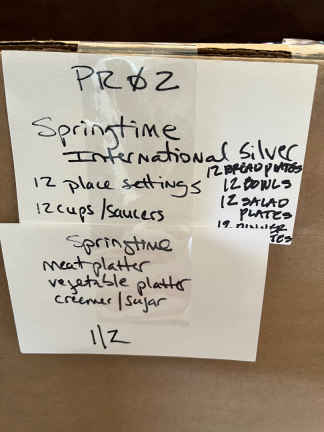 PRØ2
Springtime
International Silver
12 place settings
12 cups/saucers
12 BREAD PLATES
12 BOWLS
12 SALAD
PLATES
Springtime
meat platter
vegetable platter
creemer/sugar
1/2